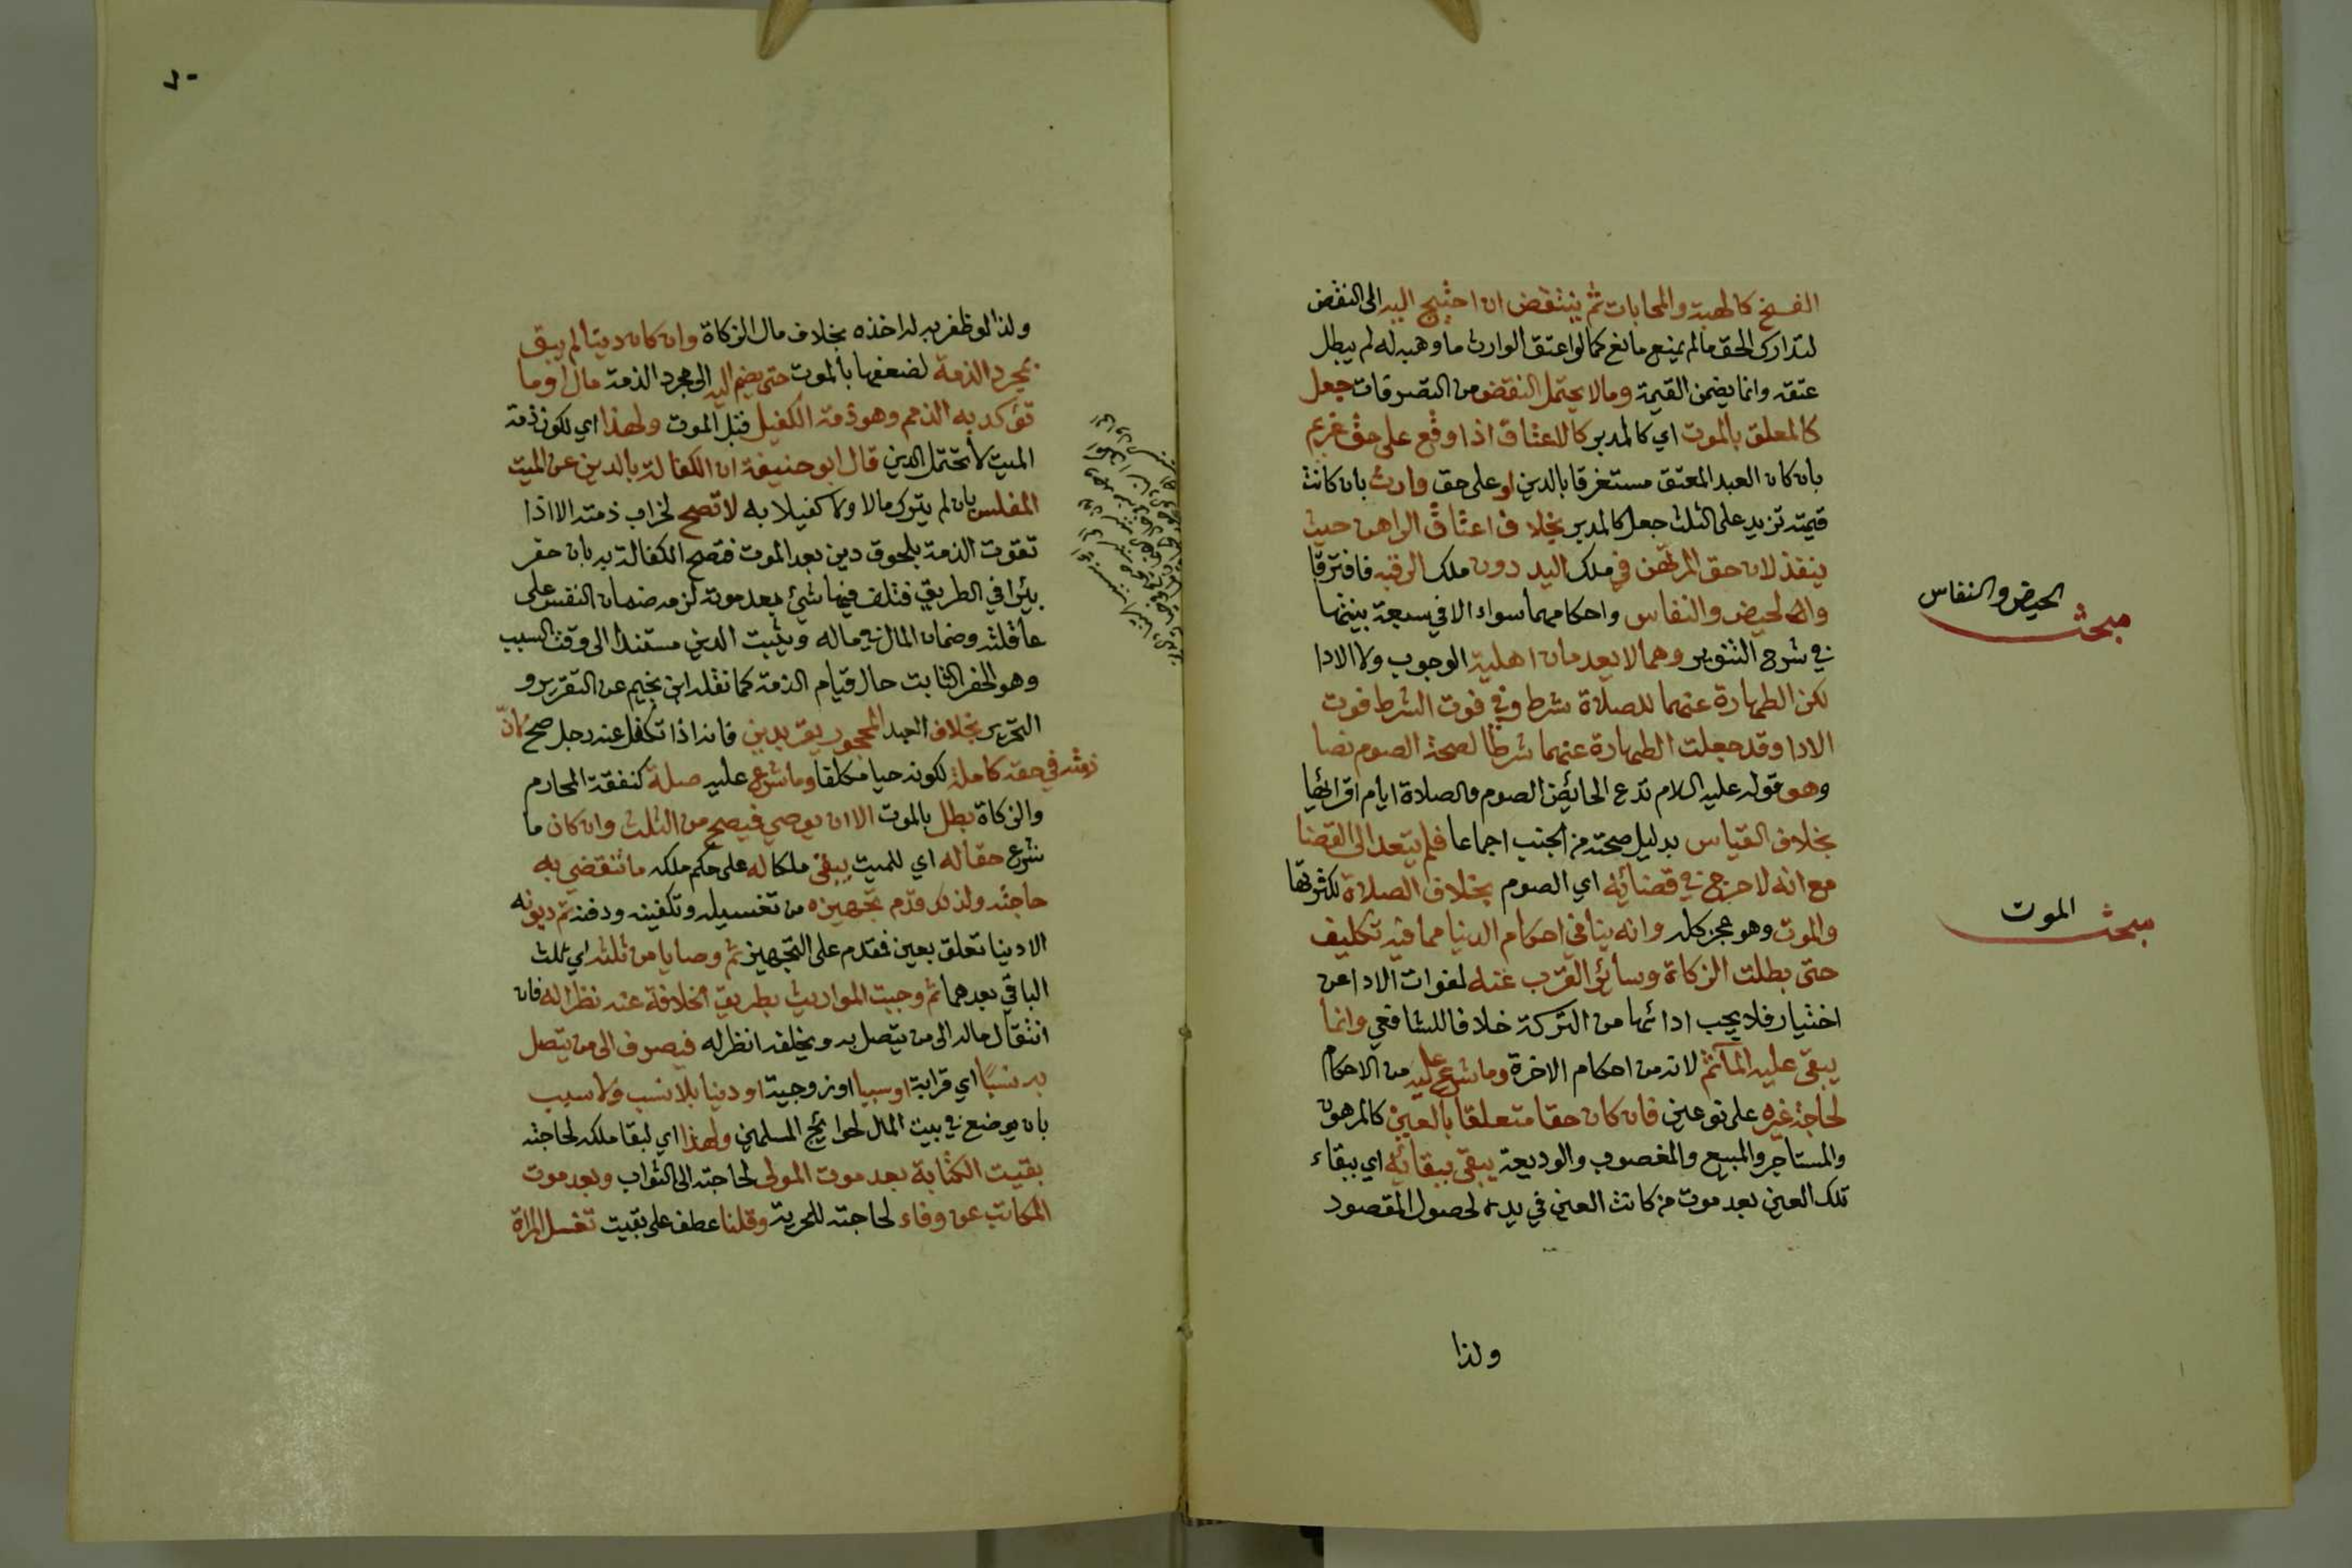 الفسخ كالهبة والمحابات ثم ينتقض ان احتيج اليه الى النقض
لتدارك الحق مالم يمنع مانع كما لو اعتق الوارث ما وهبه له لم يبطل
عتقه وانما يضمن القيمة ومالا يحتمل النقض من التصرفات جعل
كالمعلق بالموت اي كالمدبر كالاعتاق اذا وقع على حق غريم
بان كان العبد المعتق مستغرقا بالدين او على حق وارث بان كانت
قيمته تزيد على الثلث جعل كالمدبر بخلاف اعتاق الراهن حيث
ينفذ لان حق المرتهن في ملك اليد دون ملك الرقبه فافترقا
والحيض والنفاس واحكامهما سواء الا في سبعة بينتها
في شرح التنوير وهما لا يعدمان اهلية الوجوب ولا الادا
لكن الطهارة عنهما للصلاة شرط وفي فوت الشرط فوت
الادا وقد جعلت الطهارة عنهما شرطا لصحة الصوم نصا
وهو قوله عليه السلام تدع الحائض الصوم والصلاة ايام اقرائها
بخلاف القياس بدليل صحته من الجنب اجماعا فلم يتعد الى القضا
مع انه لا حرج في قضائه اي الصوم بخلاف الصلاة لكثرتها
والموت وهو عجز كله وانه ينافي احكام الدنيا مما فيه تكليف
حتى بطلت الزكاة وسائر القرب عنه لفوات الادا عن
اختيار فلا يجب ادائها من التركة خلافا للشافعي وانما
يبقى عليه المأثم لانه من احكام الاخرة وما شرع عليه من الاحكام
لحاجة غيره على نوعين فان كان حقا متعلقا بالعين كالمرهون
والمستاجر والمبيع والمغصوب والوديعة يبقى ببقائه اي ببقاء
تلك العين بعد موت من كانت العين في يده لحصول المقصود
ولذا
مبحث الحيض والنفاس
مبحث الموت
٧٠
ولذا لو ظفر به له اخذه بخلاف مال الزكاة وان كان دينا لم يبق
بمجرد الذمة لضعفها بالموت حتى يضم اليه الى مجرد الذمة مال او ما
تؤكد به الذمم وهو ذمة الكفيل قبل الموت ولهذا اي لكون ذمة
الميت لا تحتمل الدين قال ابو حنيفة ان الكفالة بالدين عن الميت
المفلس بان لم يترك مالا ولا كفيلا به لا تصح لخراب ذمته الا اذا
تقوت الذمة بلحوق دين بعد الموت فتصح الكفالة به بان حفر
بئرا في الطريق فتلف فيها شيئ بعد موته لزمه ضمان النفس على
عاقلته وضمان المال في ماله ويثبت الدين مستندا الى وقت السبب
وهو الحفر الثابت حال قيام الذمة كما نقله ابن نجيم عن التقرير و
التحرير بخلاف العبد المحجور يقر بدين فانه اذا تكفل عنه رجل صح لان
ذمته في حقه كاملة لكونه حيا مكلفا وما شرع عليه صلة كنفقة المحارم
والزكاة بطل بالموت الا ان يوصي فيصح من الثلث وان كان ما
شرع حقا له اي للميت يبقى ملكا له على حكم ملكه ما تنقضي به
حاجته ولذلك قدم تجهيزه من تغسيله وتكفينه ودفنه ثم ديونه
الا دينا تعلق بعين فقدم على التجهيز ثم وصايا من ثلثه اي ثلث
الباقي بعدهما ثم وجبت المواريث بطريق الخلافة عنه نظرا له فان
انتقال ماله الى من يتصل به ويخلفه انظر له فيصرف الى من يتصل
به نسبا اي قرابة او سببا او زوجية او دينا بلا نسب ولا سبب
بان يوضع في بيت المال لحوائج المسلمين ولهذا اي لبقا ملكه لحاجته
بقيت الكتابة بعد موت المولى لحاجته الى الثواب وبعد موت
المكاتب عن وفاء لحاجته للحرية وقلنا عطف على بقيت تغسل المراة